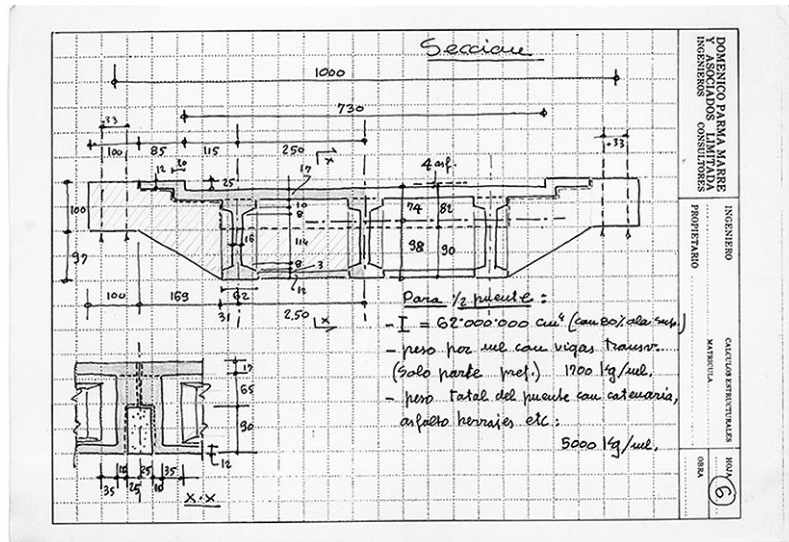 Seccion
1000
730
33
100 85 115 250
x
20
12
25
17
4 asf.
33
100
10
8
74 82
16
114
98 90
97
8 3
12
62
100 169
31 250 x
Para ½ puente :
- I = 62'000.000 cm⁴ (con 80% ala sup.)
- peso por ml con vigas transv.
(Solo parte pref.) 1700 Kg/ml.
- peso total del puente con catenaria,
asfalto herrajes etc :
5000 Kg/ml.
17
65
90
12
10 25 35
35 25 10
x-x
DOMENICO PARMA MARRE
Y ASOCIADOS LIMITADA
INGENIEROS CONSULTORES
INGENIERO
PROPIETARIO
CALCULOS ESTRUCTURALES
MATRICULA
HOJA 6
OBRA